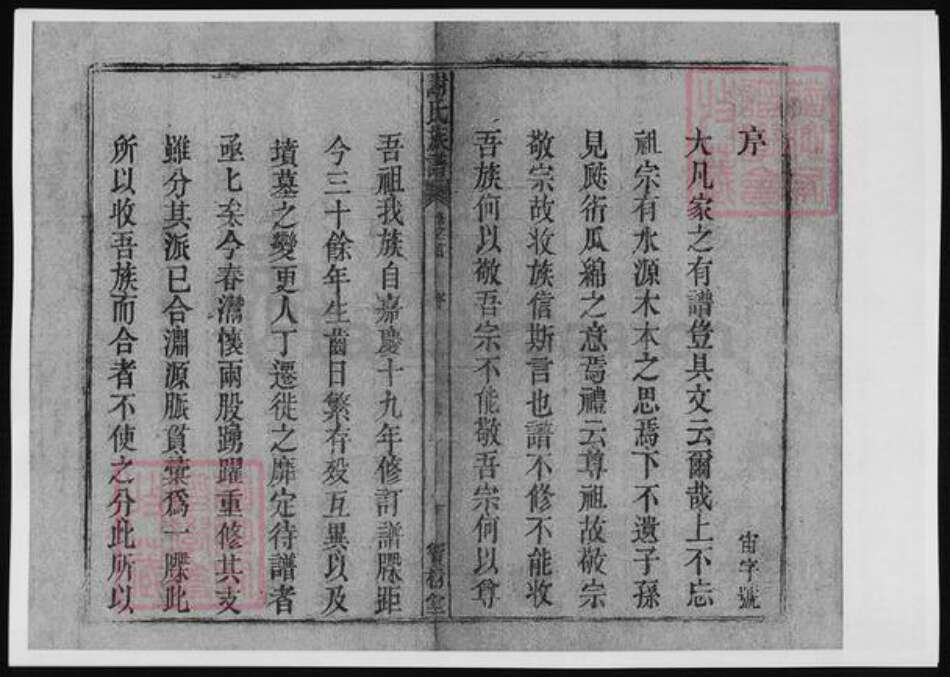 序
宙字號
大凡家之有譜豈具文云爾哉上不忘
祖宗有水源木本之思焉下不遺子孫
見瓞衍瓜綿之意焉禮云尊祖故敬宗
敬宗故收族信斯言也譜不修不能收
吾族何以敬吾宗不能敬吾宗何以尊
謝氏族譜
卷之首
序
寳樹堂
吾祖我族自嘉慶十九年修訂譜牒距
今三十餘年生齒日繁存殁互異以及
墳墓之變更人丁遷徙之靡定待譜者
亟亟矣今春灣懷兩股踴躍重修其支
雖分其派已合淵源脈貫彚爲一牒此
所以收吾族而合者不使之分此所以